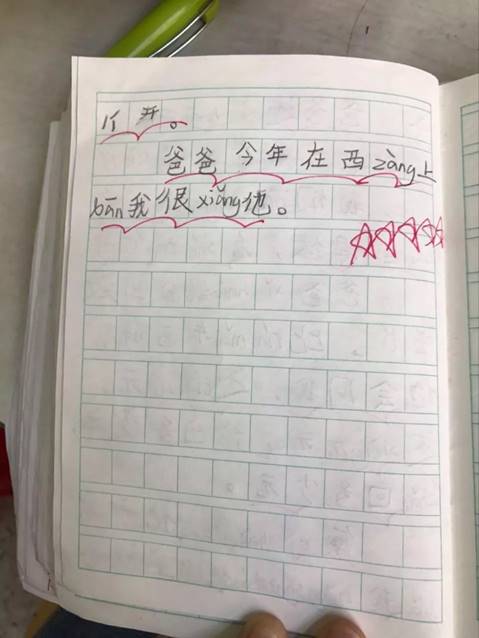 个开。
爸爸今年在西zàng上
bān我很xiǎng他。